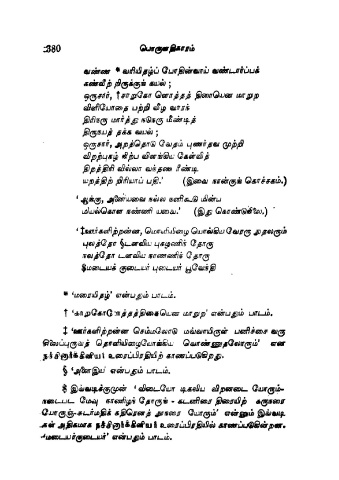 380 பொருளதிகாரம்
வண்ண * வரியிதழ்ப் போதின்வாய் வண்டார்ப்பக்
கண்வீற் றிருக்குங் கயல் ;
ஒருசார், †சாறுகோ ளொத்தத் திசையென மாறுற
விளியோதை பற்றி வீழ வாரங்
திருகரு மார்த்து நடுகரு மீண்டித்
திருநயத் தக்க வயல் ;
ஒருசார், அறத்தொடு வேதம் புணர்தவ முற்றி
விறற்புகழ் நிற்ப விளங்கிய கேள்வித்
திறத்திரி வில்லா வந்தண ரீண்டி
யறத்திற் றிரியாப் பதி.' (இவை நான்குங் கொச்சகம்.)
' ஆங்கு, அணையவை நல்ல நனிகூடு மின்ப
மியல்கொள நண்ணி யவை.' (இது கொண்டுநிலை.)
' ‡ஊர்களிற்றன்ன, மொளியிழை பொங்கிய வேரரு அதலரும்
புலத்தோ §டளவிய புகழணிந் தோரு
நலத்தோ டளவிய நாணணிந் தோரு
$மடையக் குடையர் புடையர் பூவேந்தி
* 'மரையிதழ்' என்பதும் பாடம்.
† 'சாறுகொளோத்தத்திசையென மாறுற' என்பதும் பாடம்.
‡ 'ஊர்களிற்றன்ன செம்மலொடு மவ்வாயிருள் பனிச்சை வரு
சிலைப்புருவத் தொளியிழையோங்கிய வொண்ணுதலோரும்' என
நச்சினார்க்கினியர் உரைப்பிரதியிற் காணப்படுகிறது.
§ 'அணைஇய' என்பதும் பாடம்.
$ இவ்வடிக்குமுன் 'விடையோ டிகலிய விறனடை யோரும்-
நடைபட மேவு நாணிழந் தோருங் - கடனிரை திரையிற் கருநரை
யோருஞ்-சுடர்மதிக் கதிரெனத் தூநரை யோரும்' என்னும் இவ்வடி
கள் அதிகமாக நச்சினார்க்கினியர் உரைப்பிரதியில் காணப்படுகின்றன.
'மடையர்குடையர்' என்பதும் பாடம்.